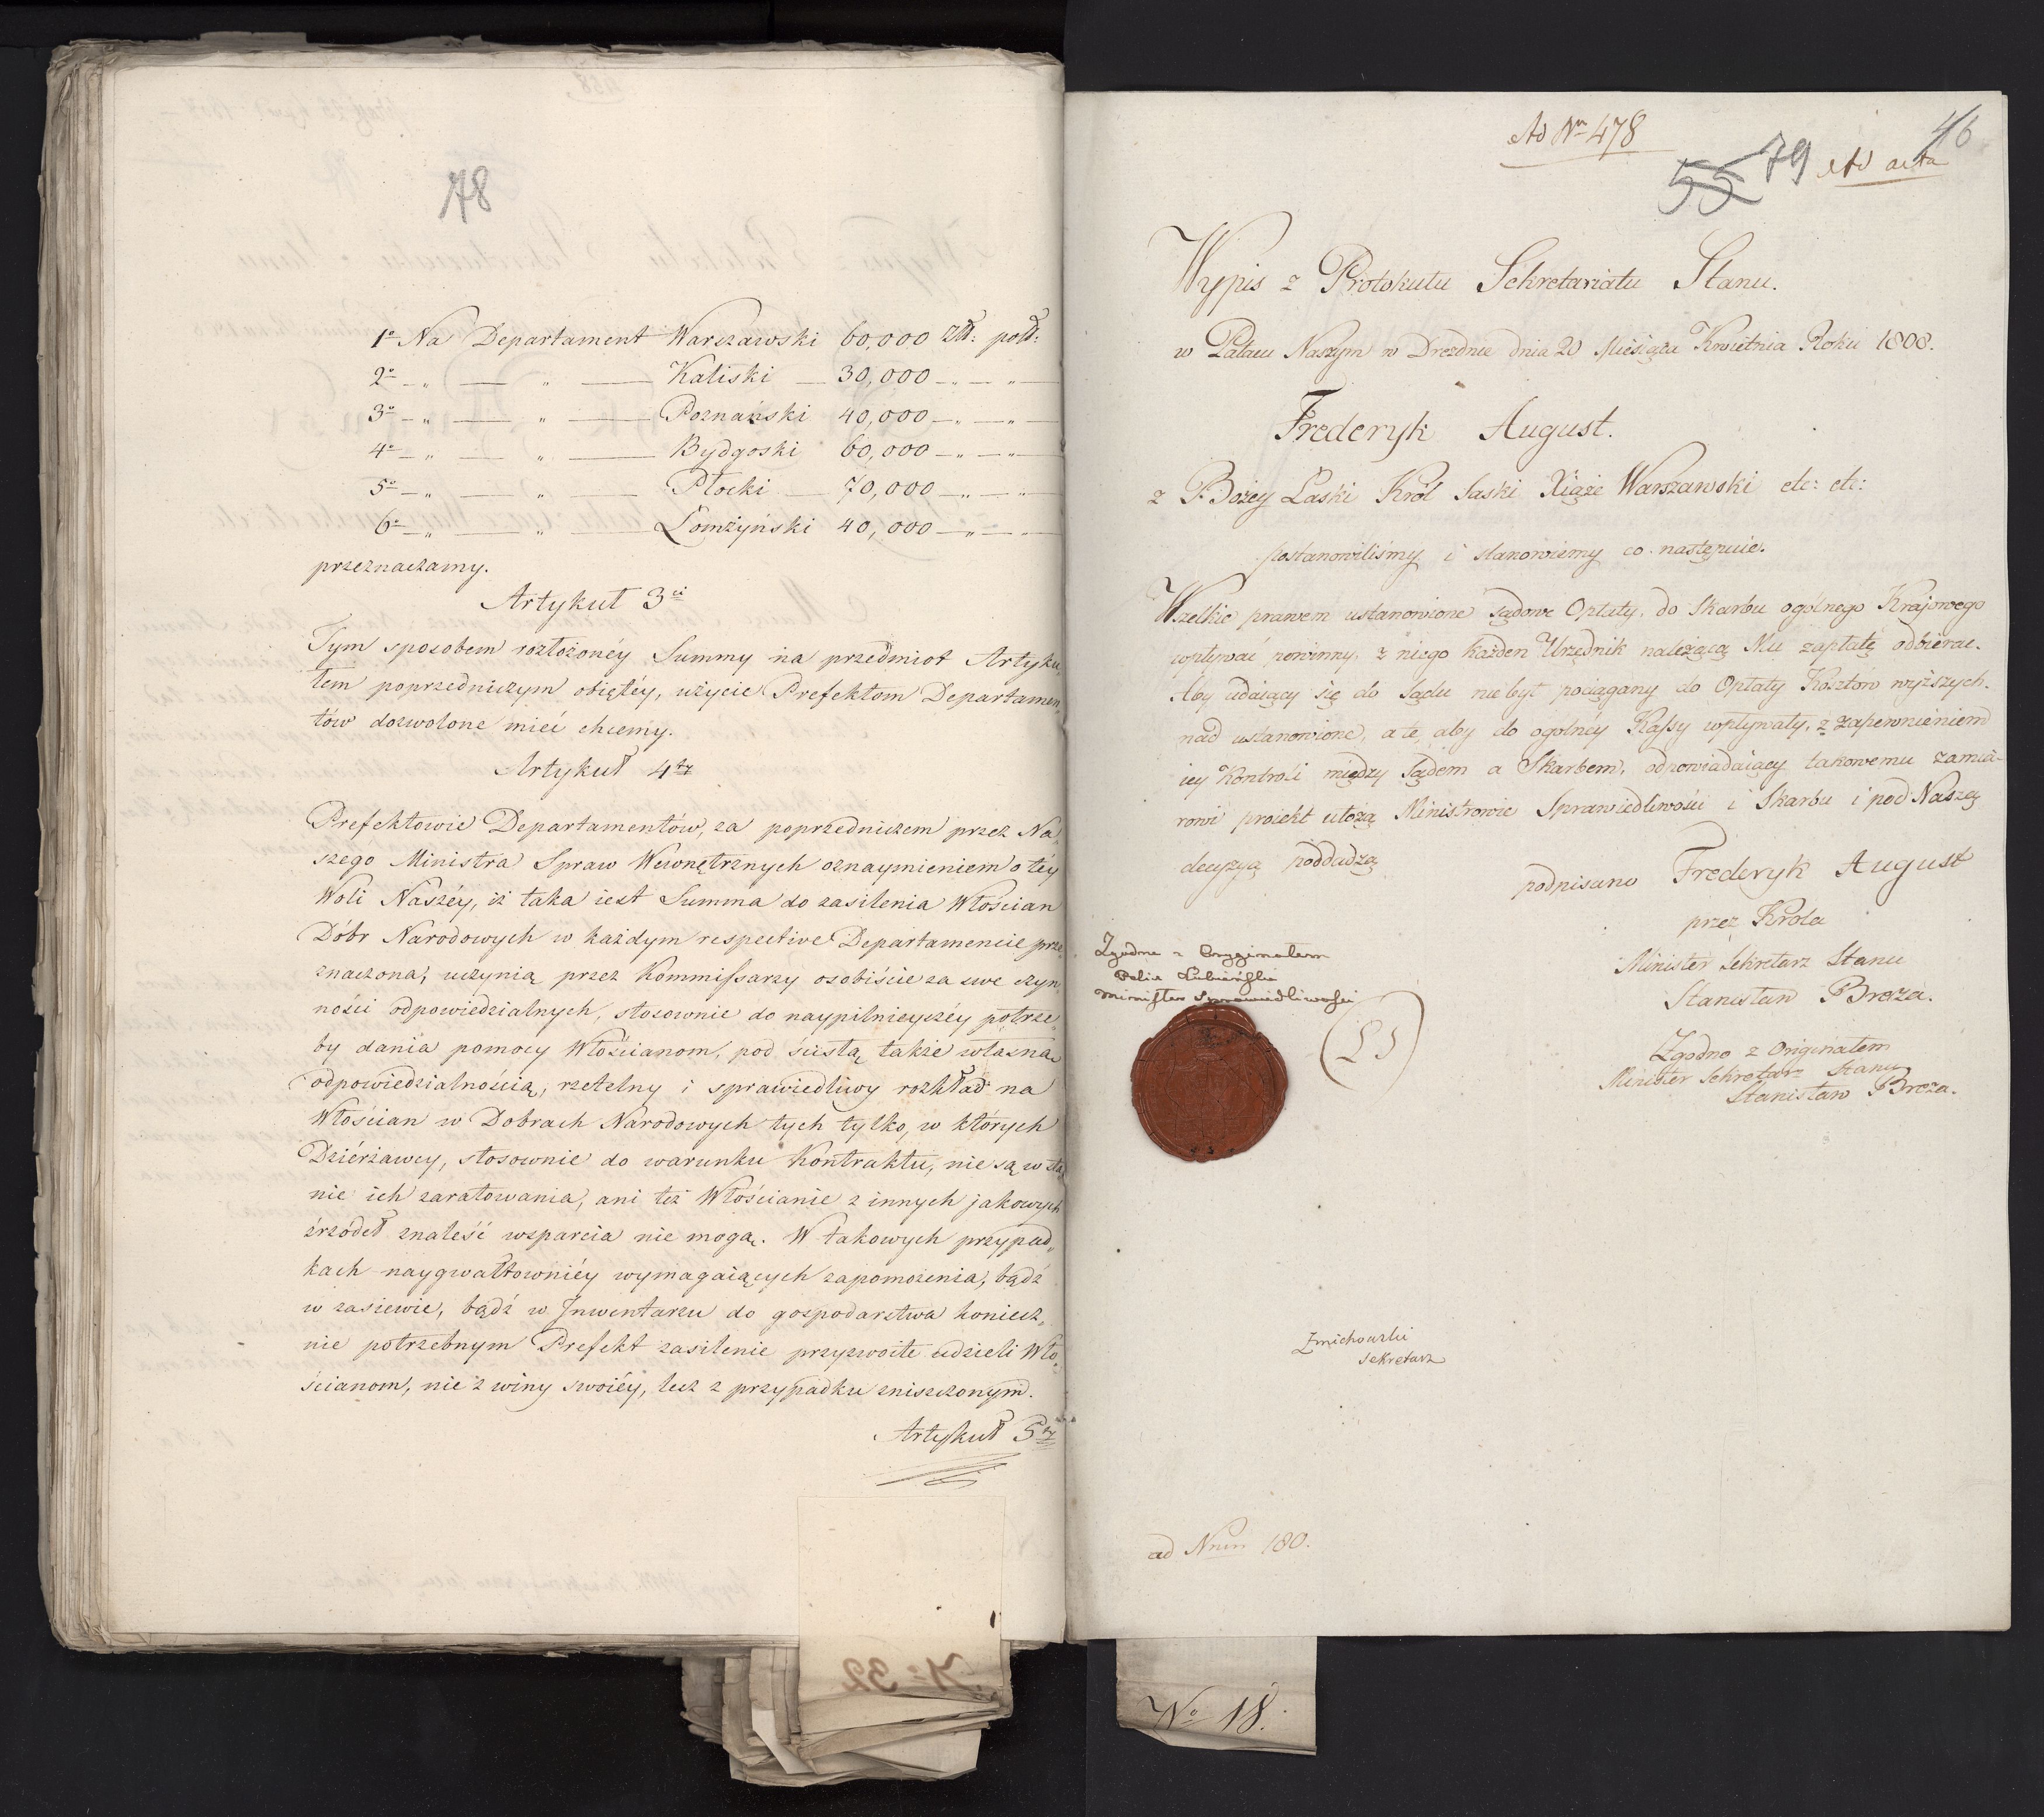 78
1º Na Departament Warszawski 60,000 Złł: polł:
2º — „ — „ — Kaliski — 30,000 — „ — „ —
3º — „ — „ — Poznański 40,000 — „ — „ —
4º — „ — „ — Bydgoski 60,000 — „ — „ —
5º — „ — „ — Płocki — 70,000 — „ — „ —
6º — „ — „ — Łomżyński 40,000 — „ — „ —
przeznaczamy.
Artykuł 3ci
Tym sposobem rozłożonéy Summy na przedmiot Artyku„
łem poprzedniczym obiętéy, użycie Prefektom Departamen„
tów dozwolone mieć chcemy.
Artykuł 4ty
Prefektowie Departamentów, za poprzedniczem przez Na„
szego Ministra Spraw Wewnętrznych oznaymieniem o téy
Woli Naszéy, iż taka iest Summa do zasilenia Włościan
Dóbr Narodowych w każdym respective Departamencie prze„
znaczona, uczynią przez Kommissarzy osobiście za swe czyn„
ności odpowiedzialnych, stosownie do naypilnieyszéy potrze„
by dania pomocy Włościanom, pod ścisłą także własną
odpowiedzialnością, rzetelny i sprawiedliwy rozkład na
Włościan w Dobrach Narodowych tych tylko, w których
Dziérżawcy, stosownie do warunku Kontraktu, nie są w sta„
nie ich zaratowania, ani też Włościanie z innych jakowych
źrzódeł znaleść wsparcia nie mogą. W takowych przypad„
kach naygwałtowniéy wymagaiących zapomożenia, bądź
w zasiewie, bądź w Jnwentarzu do gospodarstwa koniecz„
nie potrzebnym Prefekt zasilenie przyzwoite udzieli Wło„
ścianom, nie z winy swoiéy, lecz z przypadku zniszczonym.
Artykuł 5ty
Nº 32
Ad Nrn 478
55 79 Ad acta
46
Wypis z Protokułu Sekretariatu Stanu.
w Pałacu Naszym w Dreźdnie dnia 20 Miesiąca Kwietnia Roku 1808.
Frederyk August.
z Bożey Łaski Król Saski Xiąże Warszawski etc: etc:
postanowiliśmy i stanowiemy co następuie.
Wszelkie prawem ustanowione sądowe Opłaty, do Skarbu ogólnego Krajowego
wpływać powinny, z niego każden Urzędnik należącą Mu zapłatę odbierze.
Aby udaiący się do Sądu nie był pociągany do Opłaty Kosztow wyższych
nad ustanowione, a te, aby do ogolnéy Kassy wpływały, z zapewnieniem
iey Kontroli między Sądem a Skarbem, odpowiadaiący takowemu zamia-
rowi proiekt ułożą Ministrowie Sprawiedliwości i Skarbu i pod Naszą
decyzyą poddadzą
podpisano Frederyk August
przez Krola
Minister Sekretarz Stanu
Stanisław Breza.
Zgodno z Oryginałem
Felix Łubieński
Minister Sprawiedliwości
(LS)
Zgodno z Originałem
Minister Sekretarz Stanu
Stanisław Breza.
Żmichowski
Sekretarz
ad Nrum 180.
Nº 18.